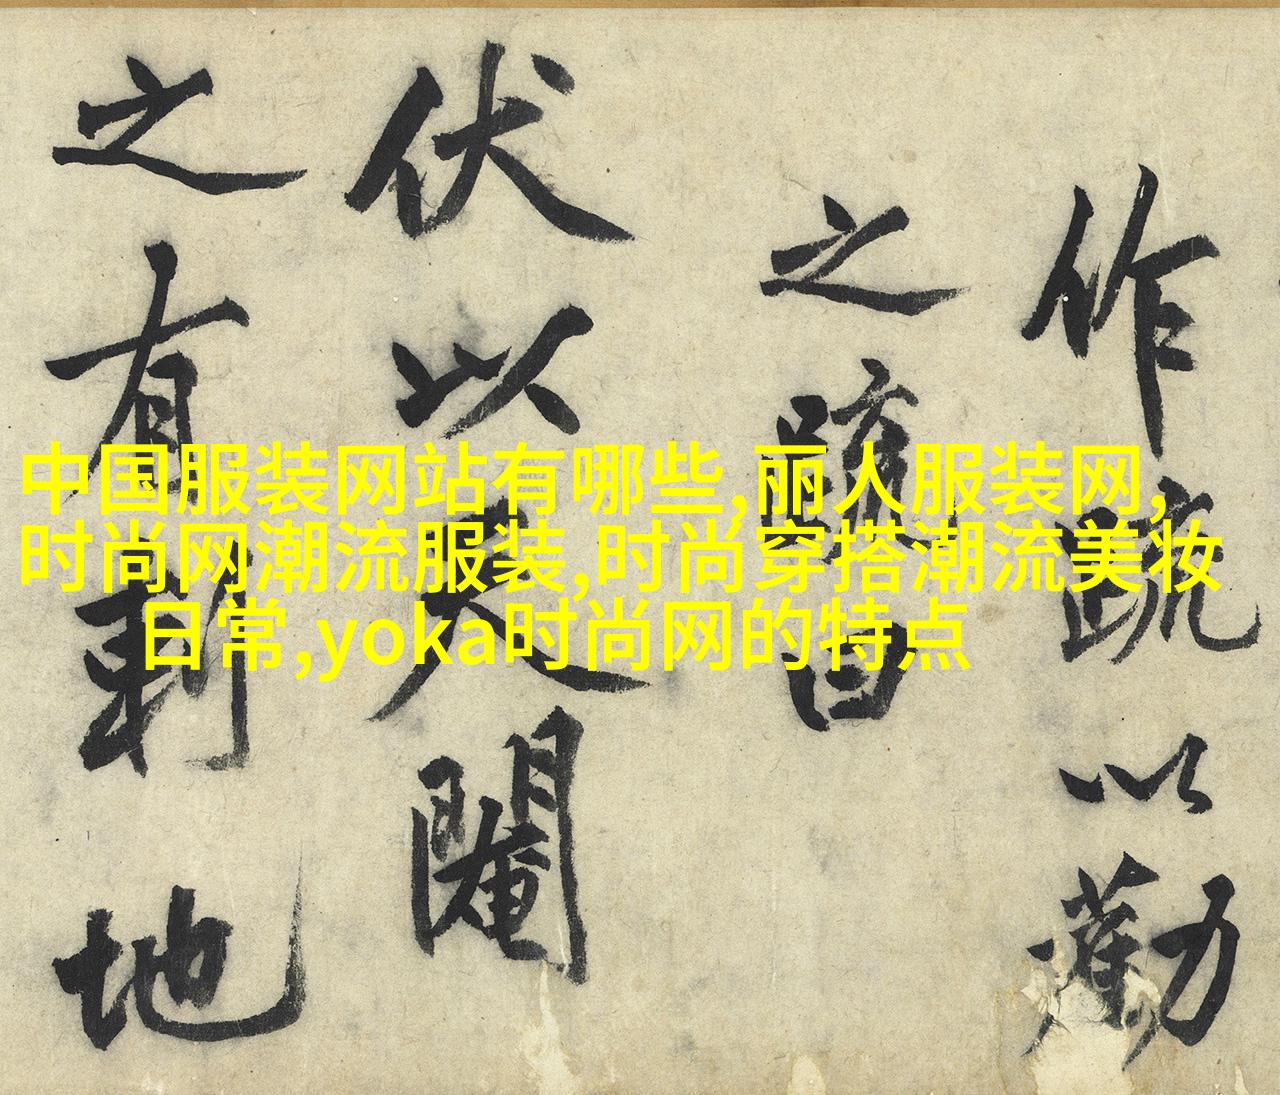 作疏以勸
之 疏曰
伏以天閹
之有剩地
中国服装网站有哪些,丽人服装网,
时尚网潮流服装,时尚穿搭潮流美妆
日常,yoka时尚网的特点